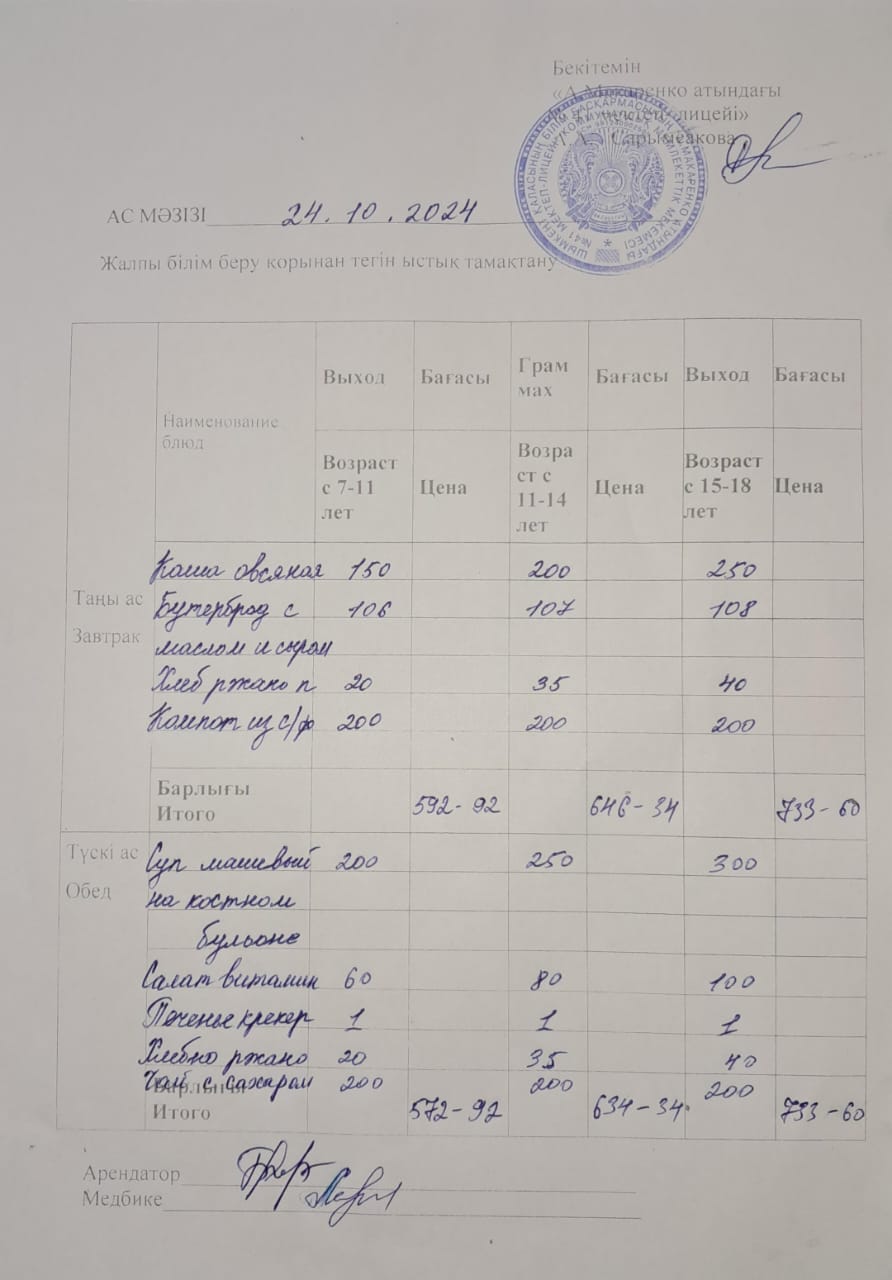 Бекітемін
«А.Макаренко атындағы
№41 мектеп-лицейі»
Сарымсакова
АС МӘЗІЗІ 24.10.2024
Жалпы білім беру қорынан тегін ыстық тамақтану
Наименование блюд Выход Бағасы Грам мах Бағасы Выход Бағасы
Возраст с 7-11 лет Цена Возра ст с 11-14 лет Цена Возраст с 15-18 лет Цена
Таңы ас
Завтрак
Каша овсяная 150 200 250
Бутерброд с 106 107 108
маслом и сыром
Хлеб ржано п 20 35 40
Компот из с/ф 200 200 200
Барлығы
Итого 592-92 646-34 733-60
Түскі ас
Обед
Суп машевый 200 250 300
на костном
бульоне
Салат витамин 60 80 100
Печенье крекер 1 1 1
Хлебно ржано 20 35 40
Чай с сахаром 200 200 200
Барлығы
Итого 572-92 634-34 733-60
Арендатор
Медбике